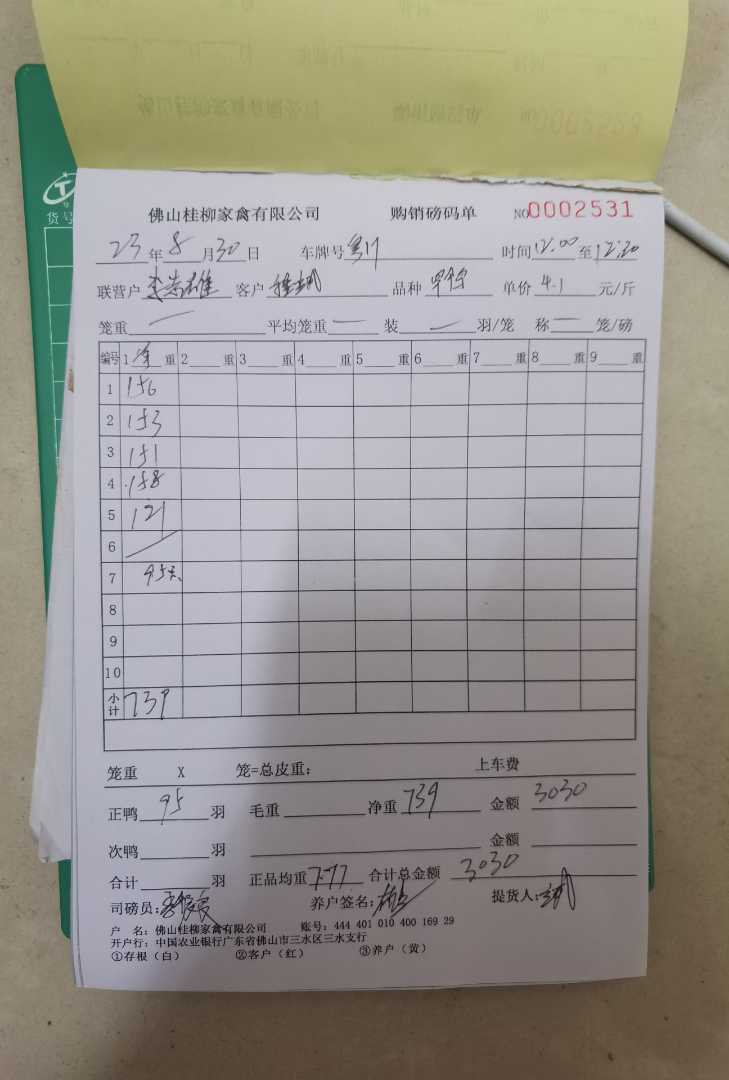 货号
佛山桂柳家禽有限公司 购销磅码单 NO0002531
23年8月30日 车牌号 时间12:00至12:20
联营户 客户 品种 单价4.1元/斤
笼重 平均笼重 装 羽/笼 称 笼/磅
编号 1净重 2 重 3 重 4 重 5 重 6 重 7 重 8 重 9 重
1 156
2 153
3 151
4 158
5 121
6
7 95只
8
9
10
小计 739
笼重 X 笼=总皮重: 上车费
正鸭95羽 毛重 净重739 金额3030
次鸭 羽 金额
合计 羽 正品均重7.77 合计总金额3030
司磅员: 养户签名: 提货人:
户 名: 佛山桂柳家禽有限公司 账号: 444 401 010 400 169 29
开户行: 中国农业银行广东省佛山市三水区三水支行
①存根(白) ②客户(红) ③养户(黄)